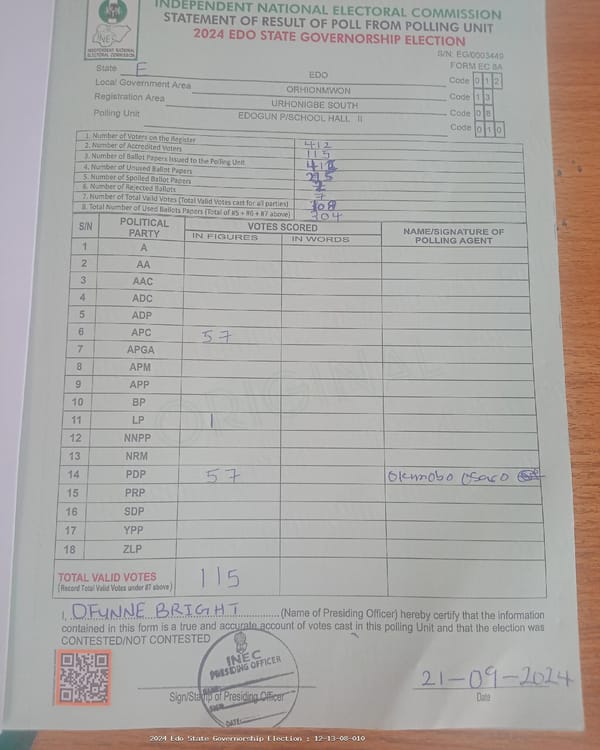 INDEPENDENT NATIONAL ELECTORAL COMMISSION
STATEMENT OF RESULT OF POLL FROM POLLING UNIT
2024 EDO STATE GOVERNORSHIP ELECTION
INEC
INDEPENDENT NATIONAL ELECTORAL COMMISSION
S/N: EG/0003449
FORM EC 8A
State E EDO Code 0 1 2
Local Government Area ORHIONMWON Code 1 3
Registration Area URHONIGBE SOUTH Code 0 8
Polling Unit EDOGUN P/SCHOOL HALL II Code 0 1 0
1. Number of Voters on the Register 412
2. Number of Accredited Voters 115
3. Number of Ballot Papers Issued to the Polling Unit
4. Number of Unused Ballot Papers
5. Number of Spoiled Ballot Papers
6. Number of Rejected Ballots 7
7. Number of Total Valid Votes (Total Valid Votes cast for all parties)
8. Total Number of Used Ballots Papers (Total of #5 + #6 + #7 above)
S/N POLITICAL PARTY VOTES SCORED NAME/SIGNATURE OF POLLING AGENT
IN FIGURES IN WORDS
1 A
2 AA
3 AAC
4 ADC
5 ADP
6 APC 57
7 APGA
8 APM
9 APP
10 BP
11 LP 1
12 NNPP
13 NRM
14 PDP 57
15 PRP
16 SDP
17 YPP
18 ZLP
ORIGINAL
TOTAL VALID VOTES 115
(Record Total Valid Votes under #7 above)
I, OFUNNE BRIGHT (Name of Presiding Officer) hereby certify that the information
contained in this form is a true and accurate account of votes cast in this polling Unit and that the election was
CONTESTED/NOT CONTESTED
INEC
PRESIDING OFFICER
NAME:
SIGN:
DATE:
21-09-2024
Sign/Stamp of Presiding Officer Date
2024 Edo State Governorship Election : 12-13-08-010